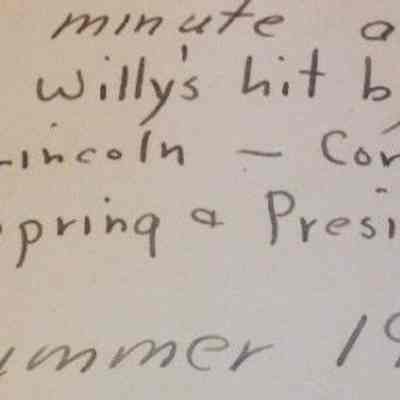 minute a
Willy's hit b
Lincoln – Cor
Spring & Presi
ummer 19